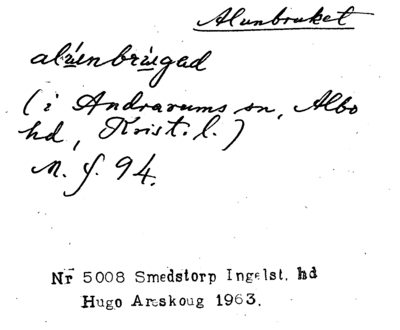 Alunbruket
alúenbrúgad
(i Andrarums sn, Albo
hd, Krist. l.)
M. f. 94.
Nr 5008 Smedstorp Ingelst. hd
Hugo Areskoug 1963.